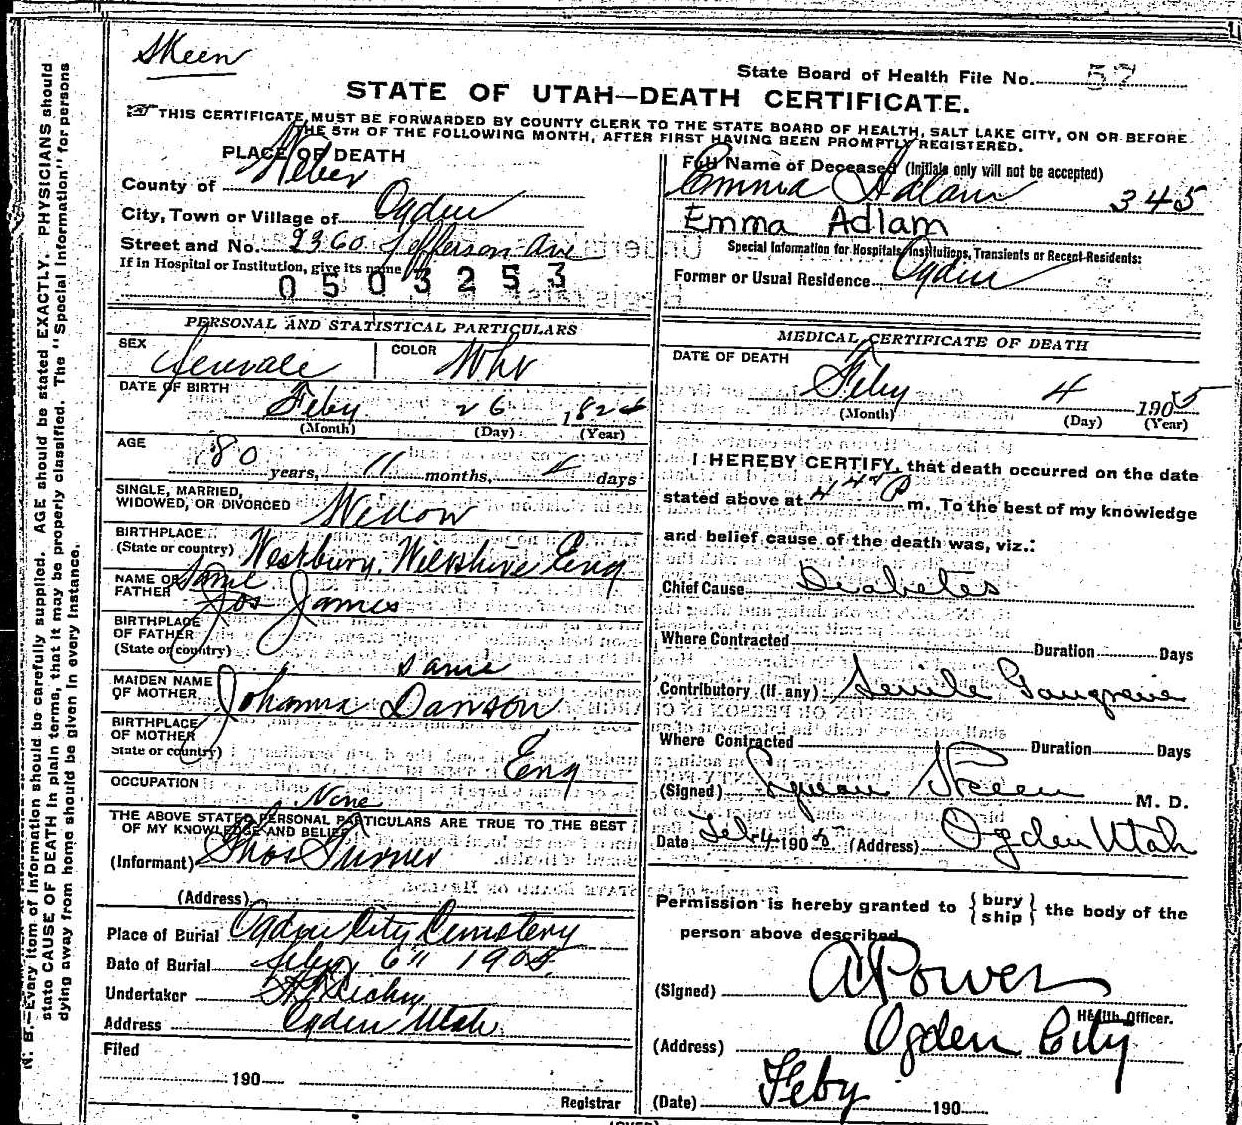 Skeen
State Board of Health File No. 57
STATE OF UTAH—DEATH CERTIFICATE.
THIS CERTIFICATE MUST BE FORWARDED BY COUNTY CLERK TO THE STATE BOARD OF HEALTH, SALT LAKE CITY, ON OR BEFORE
THE 5TH OF THE FOLLOWING MONTH, AFTER FIRST HAVING BEEN PROMPTLY REGISTERED.
PLACE OF DEATH
County of Weber
City, Town or Village of Ogden
Street and No. 2360 Jefferson Ave
If in Hospital or Institution, give its name
0503253
Full Name of Deceased (Initials only will not be accepted)
Emma Adlam 345
Emma Adlam
Special Information for Hospitals, Institutions, Transients or Recent Residents:
Former or Usual Residence Ogden
PERSONAL AND STATISTICAL PARTICULARS
SEX female COLOR Wht
DATE OF BIRTH
Feby 26 182
(Month) (Day) (Year)
AGE
80 years, 11 months, 4 days
SINGLE, MARRIED,
WIDOWED, OR DIVORCED Widow
BIRTHPLACE
(State or country) Westbury, Wilkshire Eng
NAME OF same
FATHER Jos James
BIRTHPLACE
OF FATHER
(State or country) same
MAIDEN NAME
OF MOTHER Johanna Danson
BIRTHPLACE
OF MOTHER
State or country) Eng
OCCUPATION
None
THE ABOVE STATED PERSONAL PARTICULARS ARE TRUE TO THE BEST
OF MY KNOWLEDGE AND BELIEF
(Informant) Thos Turner
(Address)
Place of Burial Ogden City Cemetery
Date of Burial Feby 6" 1905
Undertaker
Address Ogden Utah
Filed
190
Registrar
MEDICAL CERTIFICATE OF DEATH
DATE OF DEATH
Feby 4 1905
(Month) (Day) (Year)
I HEREBY CERTIFY, that death occurred on the date
stated above at 4 P m. To the best of my knowledge
and belief cause of the death was, viz.:
Chief Cause Diabetes
Where Contracted Duration Days
Contributory (if any) Senile Gangrene
Where Contracted Duration Days
(Signed) Lyman Skeen M. D.
Date Feb 4 1905 (Address) Ogden Utah
Permission is hereby granted to { bury ship } the body of the
person above described
(Signed) A Power
Health Officer.
(Address) Ogden City
(Date) Feby 190
(OVER)
N. B.—Every item of information should be carefully supplied. AGE should be stated EXACTLY. PHYSICIANS should
state CAUSE OF DEATH in plain terms, that it may be properly classified. The "Special Information" for persons
dying away from home should be given in every instance.